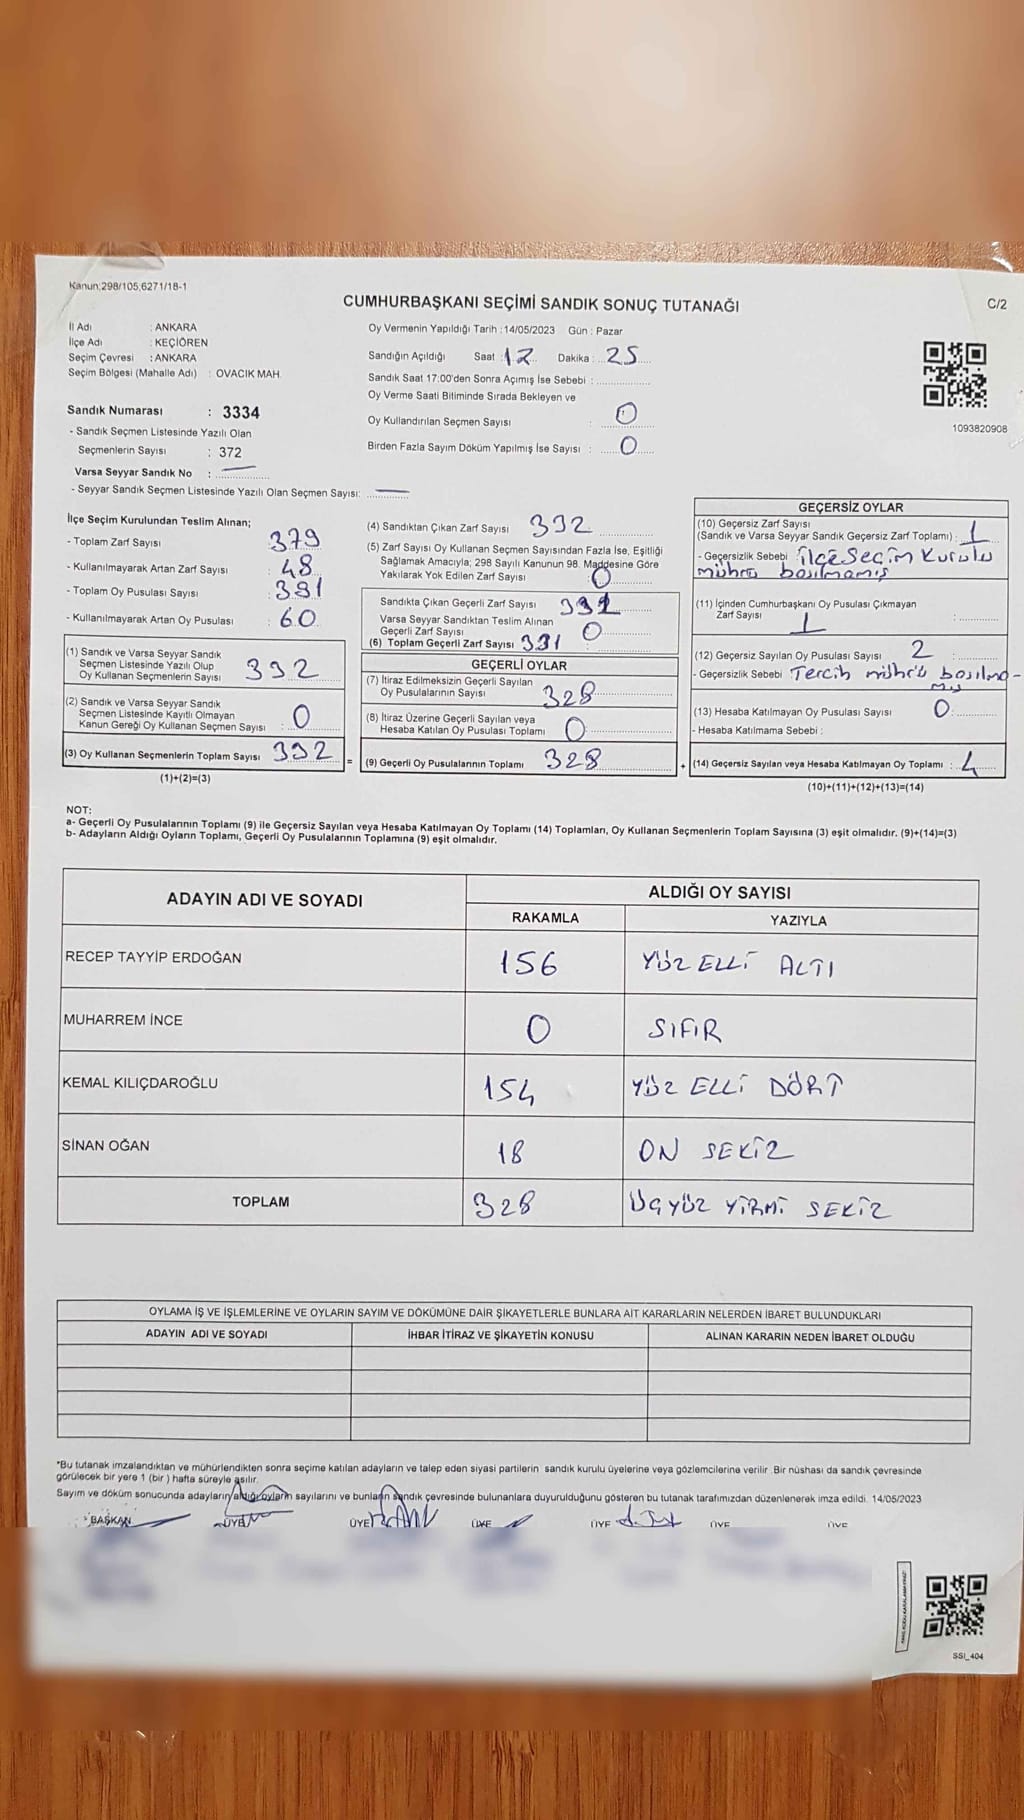 Kanun;298/105;6271/18-1
CUMHURBAŞKANI SEÇİMİ SANDIK SONUÇ TUTANAĞI
C/2
İl Adı : ANKARA
İlçe Adı : KEÇİÖREN
Seçim Çevresi : ANKARA
Seçim Bölgesi (Mahalle Adı) : OVACIK MAH.
Sandık Numarası : 3334
- Sandık Seçmen Listesinde Yazılı Olan
Seçmenlerin Sayısı : 372
Varsa Seyyar Sandık No :
- Seyyar Sandık Seçmen Listesinde Yazılı Olan Seçmen Sayısı:
Oy Vermenin Yapıldığı Tarih :14/05/2023 Gün : Pazar
Sandığın Açıldığı Saat : 17 Dakika : 25
Sandık Saat 17:00'den Sonra Açımış İse Sebebi :
Oy Verme Saati Bitiminde Sırada Bekleyen ve
Oy Kullandırılan Seçmen Sayısı : 0
Birden Fazla Sayım Döküm Yapılmış İse Sayısı : 0
1093820908
İlçe Seçim Kurulundan Teslim Alınan;
- Toplam Zarf Sayısı : 379
- Kullanılmayarak Artan Zarf Sayısı : 48
- Toplam Oy Pusulası Sayısı : 391
- Kullanılmayarak Artan Oy Pusulası : 60
(1) Sandık ve Varsa Seyyar Sandık
Seçmen Listesinde Yazılı Olup
Oy Kullanan Seçmenlerin Sayısı : 332
(2) Sandık ve Varsa Seyyar Sandık
Seçmen Listesinde Kayıtlı Olmayan
Kanun Gereği Oy Kullanan Seçmen Sayısı : 0
(3) Oy Kullanan Seçmenlerin Toplam Sayısı : 332
(1)+(2)=(3)
=
(4) Sandıktan Çıkan Zarf Sayısı 332
(5) Zarf Sayısı Oy Kullanan Seçmen Sayısından Fazla İse, Eşitliği
Sağlamak Amacıyla; 298 Sayılı Kanunun 98. Maddesine Göre
Yakılarak Yok Edilen Zarf Sayısı : 0
Sandıkta Çıkan Geçerli Zarf Sayısı : 331
Varsa Seyyar Sandıktan Teslim Alınan
Geçerli Zarf Sayısı : 0
(6) Toplam Geçerli Zarf Sayısı 331
GEÇERLİ OYLAR
(7) İtiraz Edilmeksizin Geçerli Sayılan
Oy Pusulalarının Sayısı 328
(8) İtiraz Üzerine Geçerli Sayılan veya
Hesaba Katılan Oy Pusulası Toplamı 0
(9) Geçerli Oy Pusulalarının Toplamı 328
+
GEÇERSİZ OYLAR
(10) Geçersiz Zarf Sayısı
(Sandık ve Varsa Seyyar Sandık Geçersiz Zarf Toplamı) : 1
- Geçersizlik Sebebi : ilçe Seçim Kurulu
mührü basılmamış
(11) İçinden Cumhurbaşkanı Oy Pusulası Çıkmayan
Zarf Sayısı : 1
(12) Geçersiz Sayılan Oy Pusulası Sayısı : 2
- Geçersizlik Sebebi Tercih mührü basılma-
mış
(13) Hesaba Katılmayan Oy Pusulası Sayısı : 0
- Hesaba Katılmama Sebebi :
(14) Geçersiz Sayılan veya Hesaba Katılmayan Oy Toplamı : 4
(10)+(11)+(12)+(13)=(14)
NOT:
a- Geçerli Oy Pusulalarının Toplamı (9) ile Geçersiz Sayılan veya Hesaba Katılmayan Oy Toplamı (14) Toplamları, Oy Kullanan Seçmenlerin Toplam Sayısına (3) eşit olmalıdır. (9)+(14)=(3)
b- Adayların Aldığı Oyların Toplamı, Geçerli Oy Pusulalarının Toplamına (9) eşit olmalıdır.
ADAYIN ADI VE SOYADI
ALDIĞI OY SAYISI
RAKAMLA YAZIYLA
RECEP TAYYİP ERDOĞAN 156 YÜZ ELLİ ALTI
MUHARREM İNCE 0 SIFIR
KEMAL KILIÇDAROĞLU 154 YÜZ ELLİ DÖRT
SİNAN OĞAN 18 ON SEKİZ
TOPLAM 328 ÜÇYÜZ YİRMİ SEKİZ
OYLAMA İŞ VE İŞLEMLERİNE VE OYLARIN SAYIM VE DÖKÜMÜNE DAİR ŞİKAYETLERLE BUNLARA AİT KARARLARIN NELERDEN İBARET BULUNDUKLARI
ADAYIN ADI VE SOYADI İHBAR İTİRAZ VE ŞİKAYETİN KONUSU ALINAN KARARIN NEDEN İBARET OLDUĞU
*Bu tutanak imzalandıktan ve mühürlendikten sonra seçime katılan adayların ve talep eden siyasi partilerin sandık kurulu üyelerine veya gözlemcilerine verilir .Bir nüshası da sandık çevresinde
görülecek bir yere 1 (bir ) hafta süreyle asılır.
Sayım ve döküm sonucunda adayların aldığı oyların sayılarını ve bunların sandık çevresinde bulunanlara duyurulduğunu gösteren bu tutanak tarafımızdan düzenlenerek imza edildi. 14/05/2023
BAŞKAN ÜYE ÜYE ÜYE ÜYE ÜYE ÜYE
SSI_404